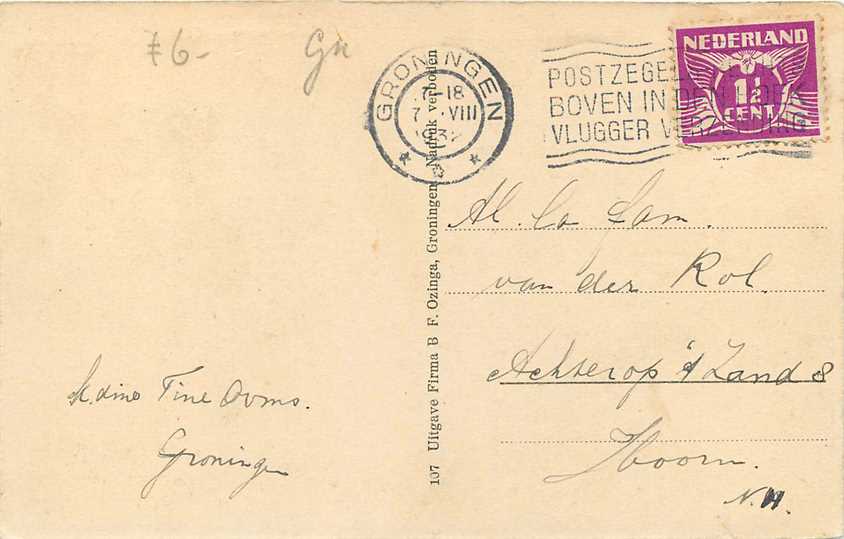 76-
Gn
GRONINGEN
7-18
7 VIII
193
POSTZEGEL
BOVEN IN DEN HOEK
VLUGGER VERZENDING
NEDERLAND
1½
CENT
107 Uitgave Firma B F. Ozinga, Groningen, Nadruk verboden
Al. Co Fam.
van der Kol.
Achterop 't Zand 8
Hoorn.
N.H.
Tine Doms.
Groningen